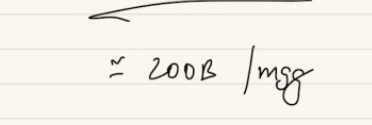 ≈ 200B /msg